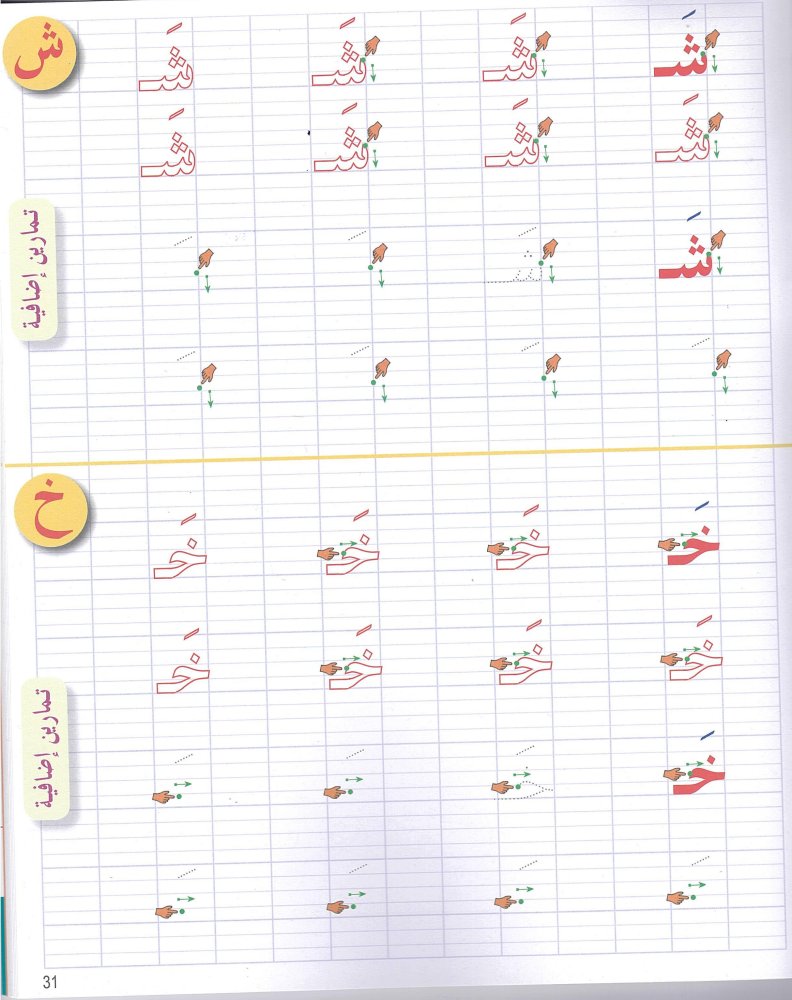 ش
شَـ شَـ شَـ شَـ
شَـ شَـ شَـ شَـ
تمارين إضافية
شَـ شَـ
خ
خَـ خَـ خَـ خَـ
خَـ خَـ خَـ خَـ
تمارين إضافية
خَـ خَـ
31